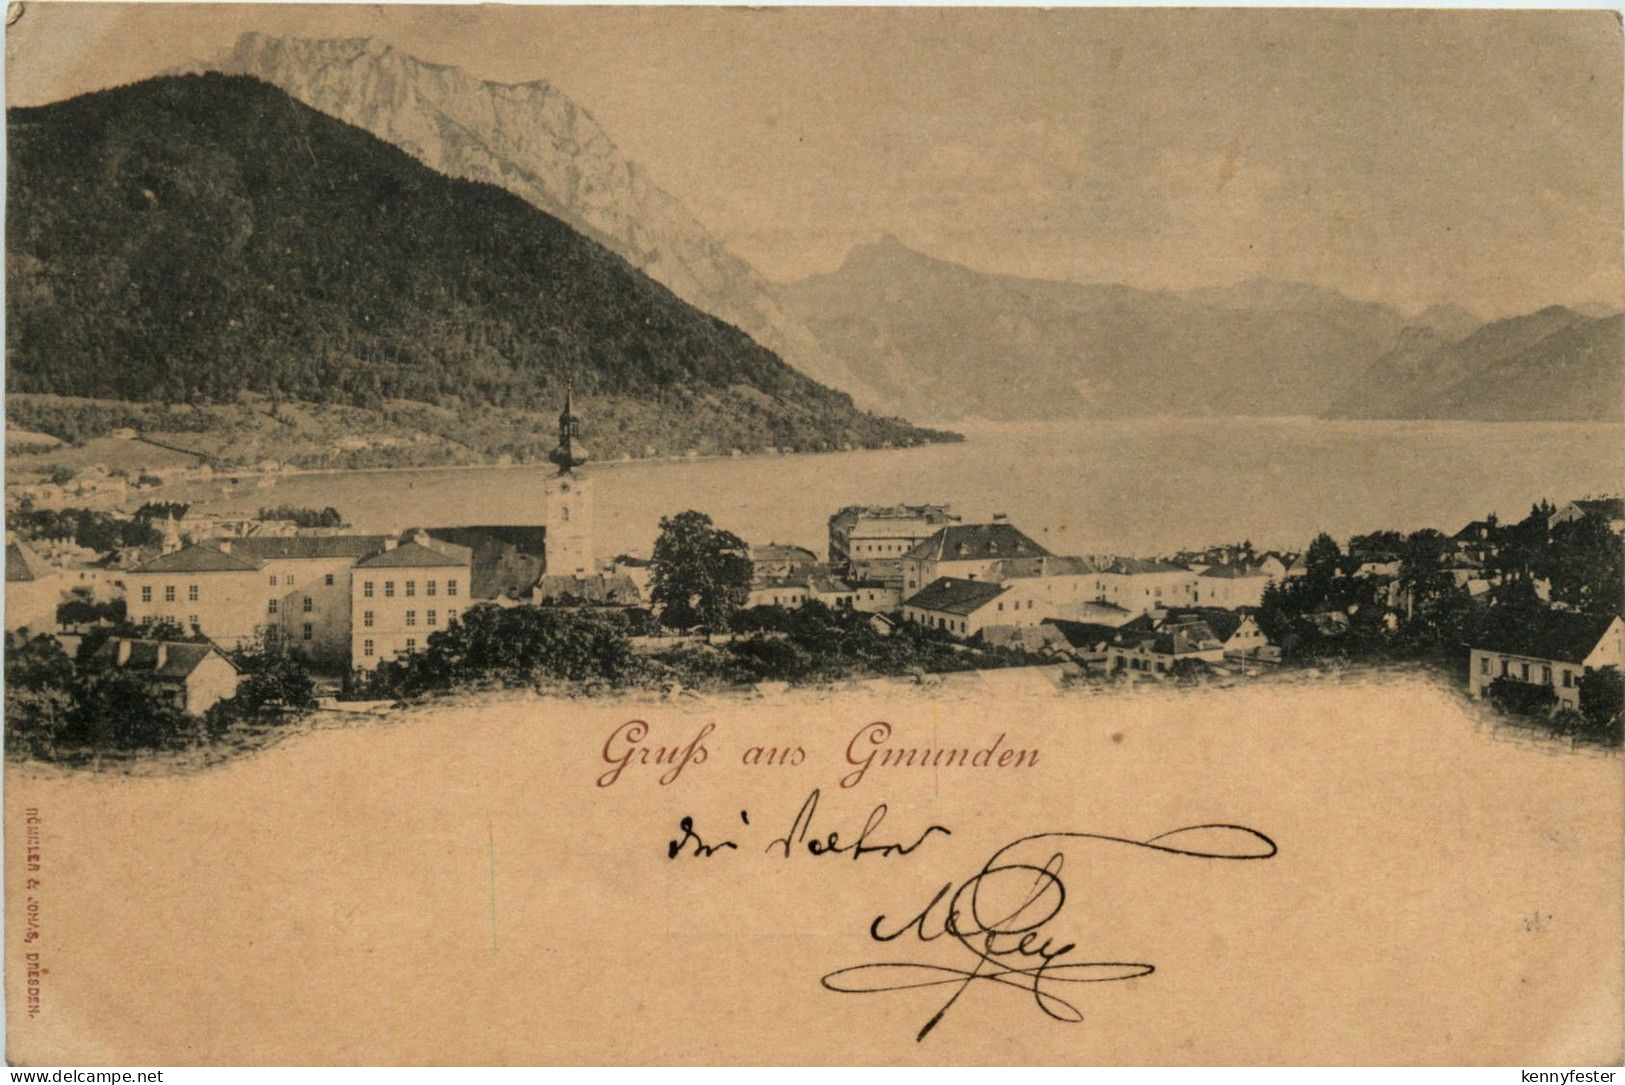 Gruß aus Gmunden
dein Vater
RÖMMLER & JONAS, DRESDEN.
www.delcampe.net
kennyfester